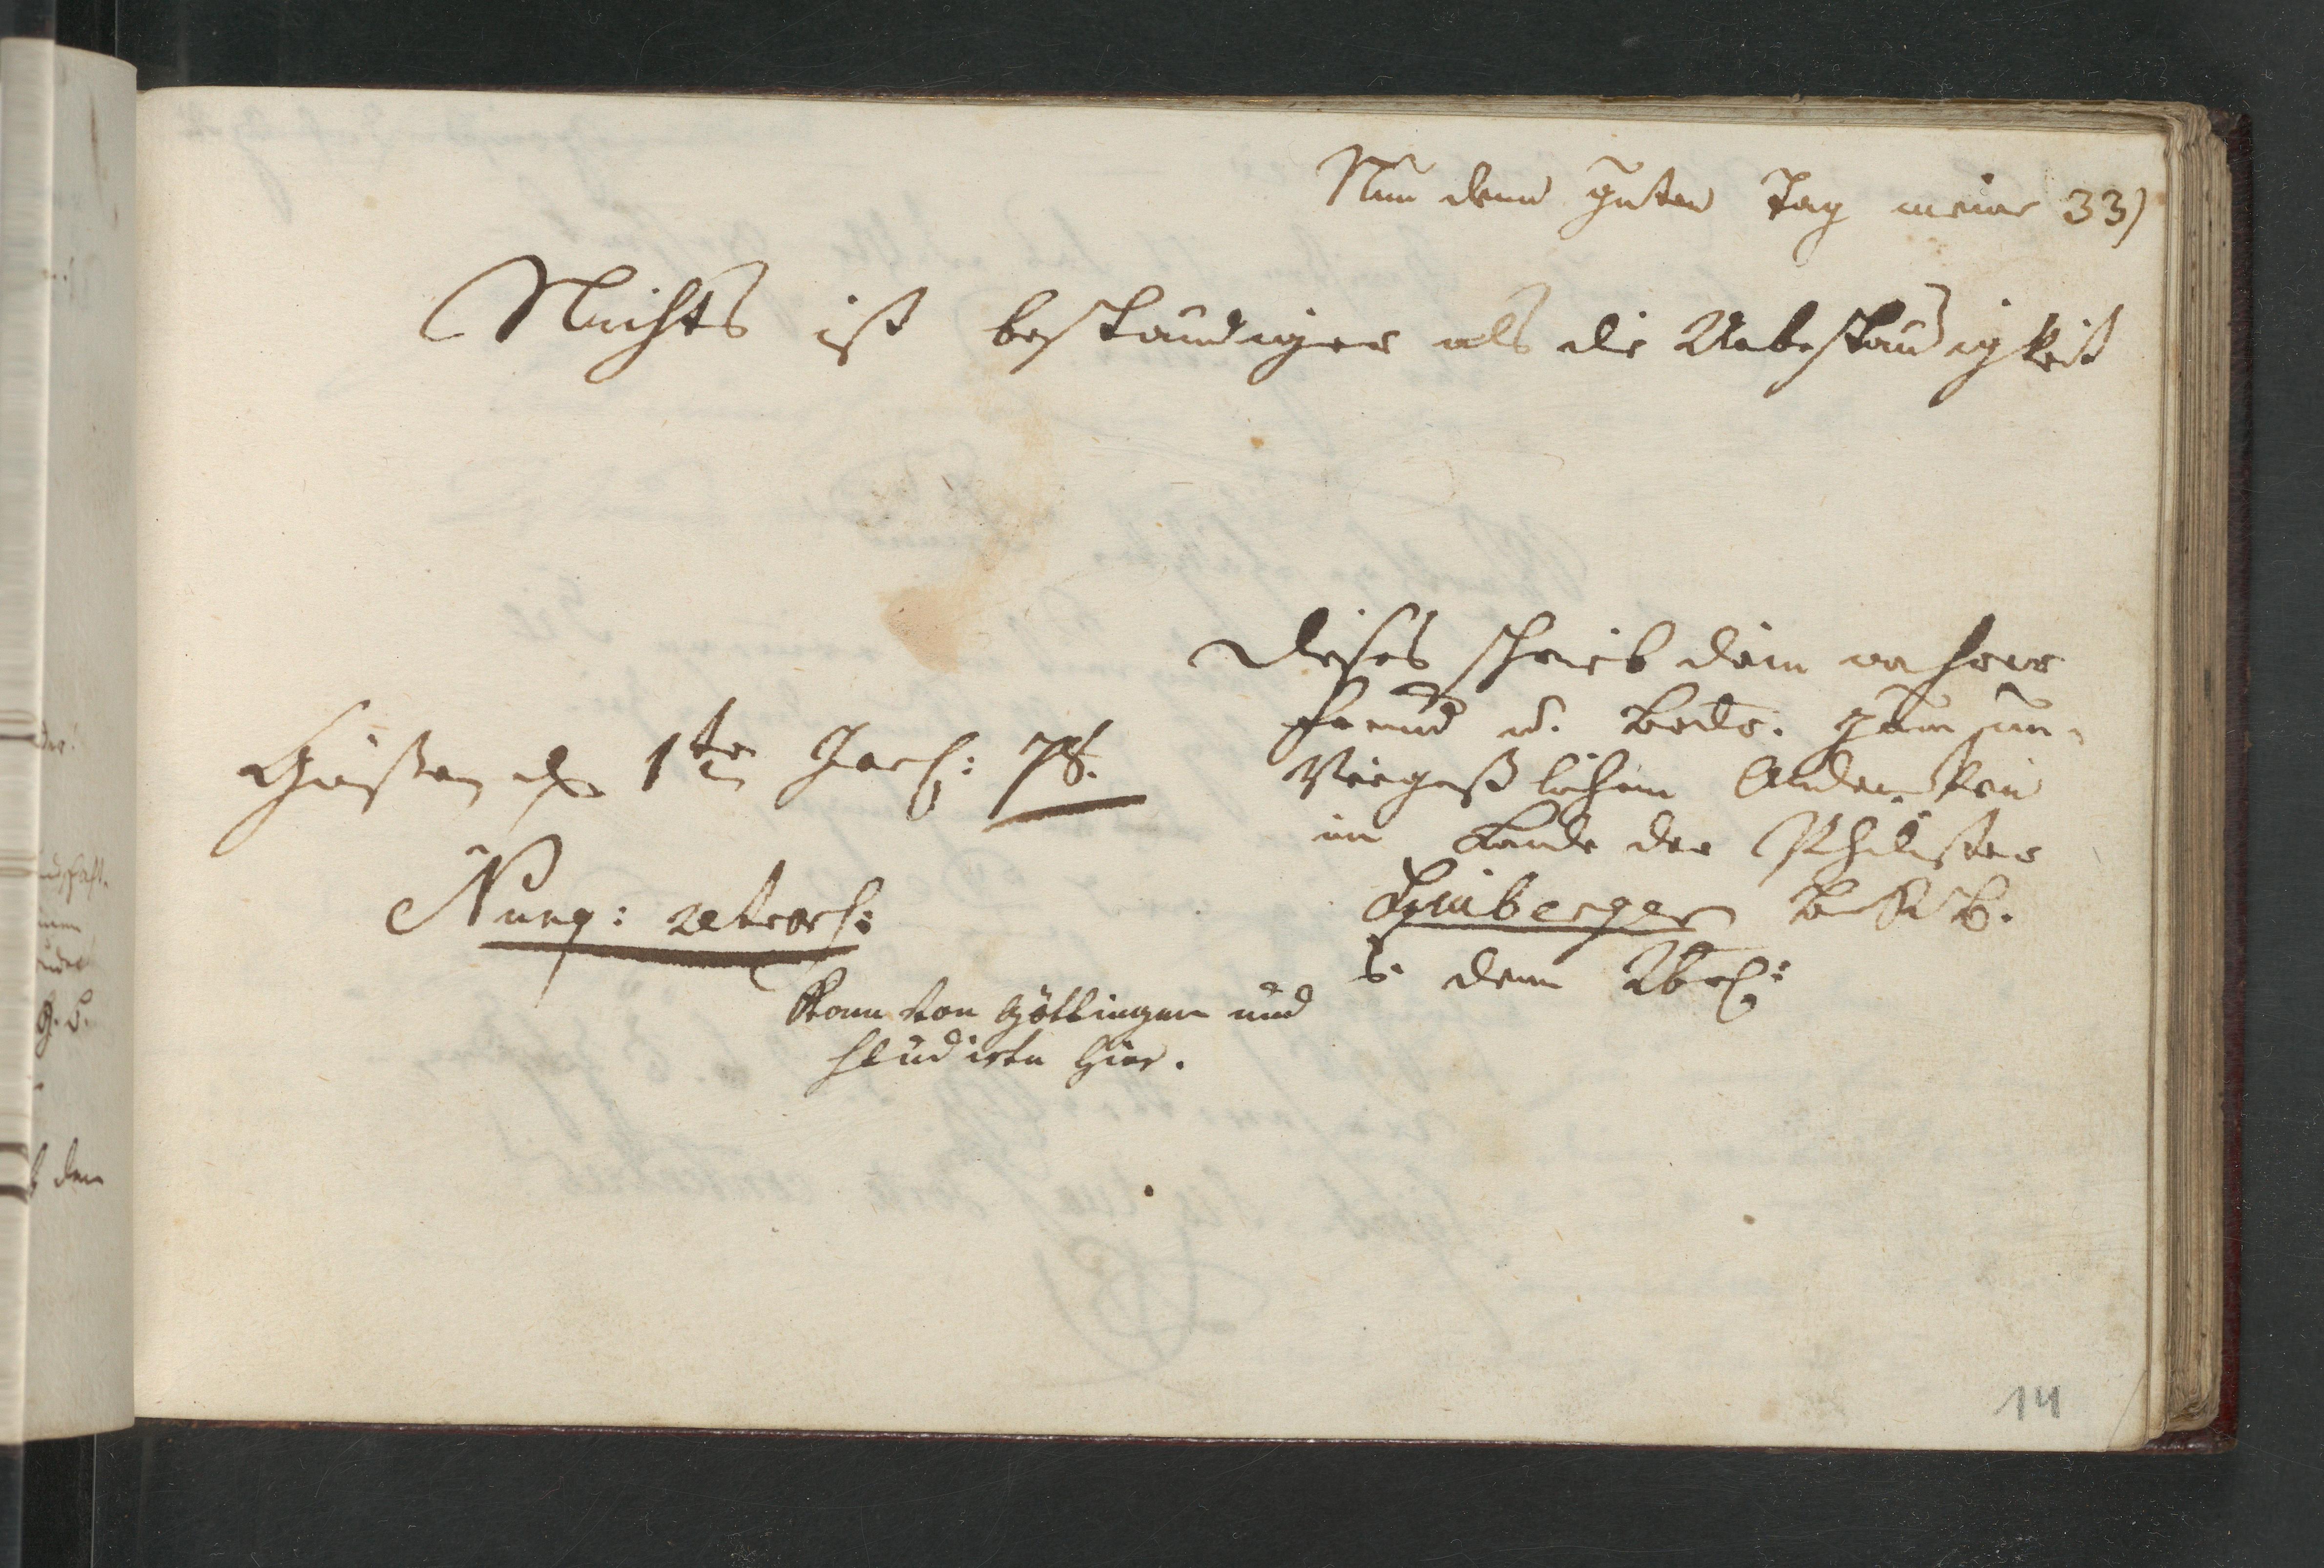 Nun denn guten Tag meine 33)
Nichts ist beständiger als die Unbeständigkeit
Dieses schrieb dein wahrer
Freund u. Brdr. zum un-
Vergeßlichem Andenken
im Lande der Philister
Gießen d 1ten 78.
Nunq: retrors:
dem
Kam von Göttingen und
studirte hier.
14